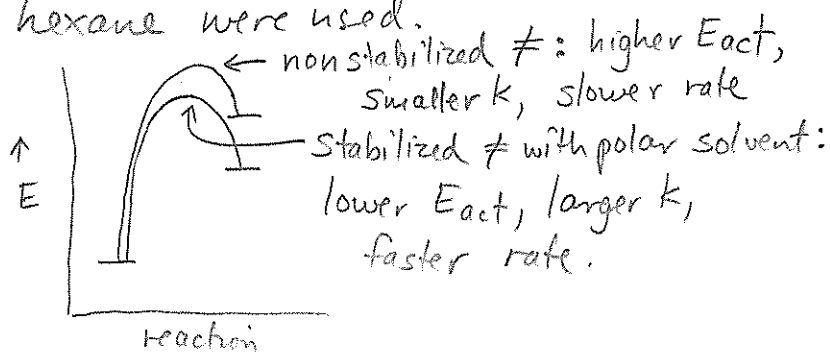 hexane were used.
← nonstabilized ≠: higher Eact,
smaller k, slower rate
stabilized ≠ with polar solvent:
lower Eact, larger k,
faster rate.
↑
E
reaction